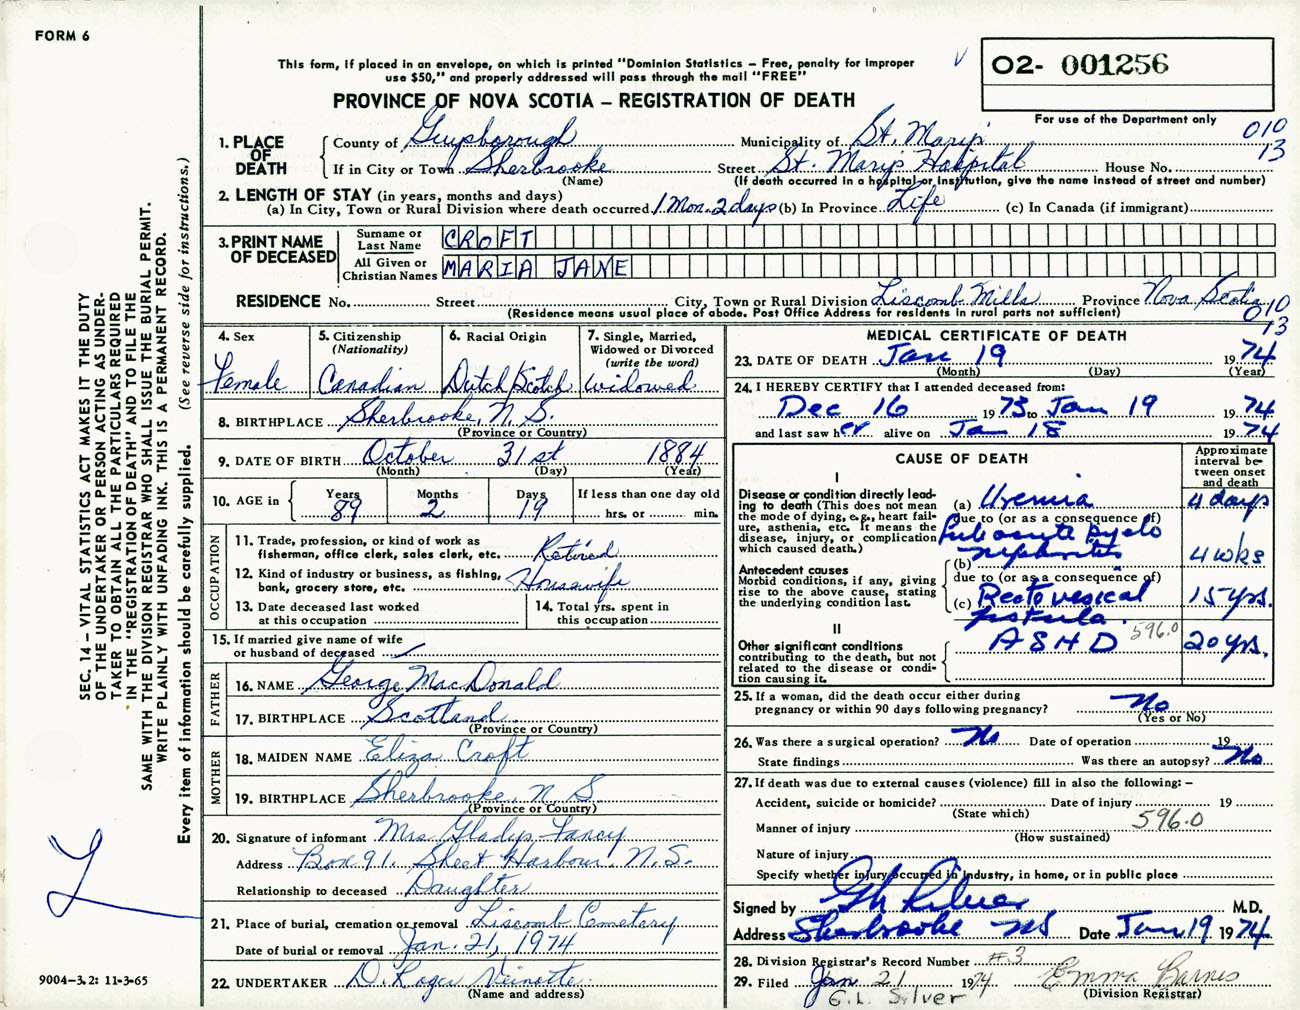 FORM 6
This form, if placed in an envelope, on which is printed "Dominion Statistics – Free, penalty for improper
use $50," and properly addressed will pass through the mail "FREE"
PROVINCE OF NOVA SCOTIA – REGISTRATION OF DEATH
02- 001256
For use of the Department only
010
13
1. PLACE OF DEATH
County of Guysborough Municipality of St. Mary's
If in City or Town Sherbrooke Street St. Mary's Hospital House No.
(Name) (If death occurred in a hospital or institution, give the name instead of street and number)
2. LENGTH OF STAY (in years, months and days)
(a) In City, Town or Rural Division where death occurred 1 Mon. 2 days (b) In Province Life (c) In Canada (if immigrant)
3. PRINT NAME OF DECEASED
Surname or Last Name CROFT
All Given or Christian Names MARIA JANE
RESIDENCE No. Street City, Town or Rural Division Liscomb Mills Province Nova Scotia
(Residence means usual place of abode. Post Office Address for residents in rural parts not sufficient)
010
13
4. Sex
Female
5. Citizenship
(Nationality)
Canadian
6. Racial Origin
Dutch Scotch
7. Single, Married,
Widowed or Divorced
(write the word)
widowed
8. BIRTHPLACE Sherbrooke, N. S.
(Province or Country)
9. DATE OF BIRTH October 31st 1884
(Month) (Day) (Year)
10. AGE in
Years Months Days If less than one day old
89 2 19 hrs. or min.
OCCUPATION
11. Trade, profession, or kind of work as
fisherman, office clerk, sales clerk, etc. Retired
12. Kind of industry or business, as fishing,
bank, grocery store, etc. Housewife
13. Date deceased last worked
at this occupation
14. Total yrs. spent in
this occupation
15. If married give name of wife
or husband of deceased
FATHER
16. NAME George MacDonald
17. BIRTHPLACE Scotland
(Province or Country)
MOTHER
18. MAIDEN NAME Eliza Croft
19. BIRTHPLACE Sherbrooke, N S.
(Province or Country)
20. Signature of informant Mrs Gladys Fancy
Address Box 91. Sheet Harbour, N.S.
Relationship to deceased Daughter
21. Place of burial, cremation or removal Liscomb Cemetary
Date of burial or removal Jan. 21, 1974
22. UNDERTAKER D. Roger Veinotte
(Name and address)
MEDICAL CERTIFICATE OF DEATH
23. DATE OF DEATH Jan 19 1974
(Month) (Day) (Year)
24. I HEREBY CERTIFY that I attended deceased from:
Dec 16 1973 to Jan 19 1974
and last saw her alive on Jan 18 1974
CAUSE OF DEATH
Approximate
interval be-
tween onset
and death
I
Disease or condition directly lead-
ing to death (This does not mean
the mode of dying, e.g., heart fail-
ure, asthenia, etc. It means the
disease, injury, or complication
which caused death.)
(a) Uremia 4 days
due to (or as a consequence of)
Subacute pyelo
(b) nephritis 4 wks
Antecedent causes
Morbid conditions, if any, giving
rise to the above cause, stating
the underlying condition last.
due to (or as a consequence of)
(c) Recto vesical 15 yrs.
fistula.
II
Other significant conditions
contributing to the death, but not
related to the disease or condi-
tion causing it.
A S H D 596.0 20 yrs.
25. If a woman, did the death occur either during
pregnancy or within 90 days following pregnancy? No
(Yes or No)
26. Was there a surgical operation? No Date of operation 19
State findings Was there an autopsy? No
27. If death was due to external causes (violence) fill in also the following: –
Accident, suicide or homicide? Date of injury 19
(State which)
Manner of injury 596.0
(How sustained)
Nature of injury
Specify whether injury occurred in industry, in home, or in public place
Signed by M.D.
Address Sherbrooke NS Date Jan 19 1974
28. Division Registrar's Record Number #3
29. Filed Jan 21 1974 Emma Barnes
(Division Registrar)
G.L. Silver
SEC. 14 – VITAL STATISTICS ACT MAKES IT THE DUTY
OF THE UNDERTAKER OR PERSON ACTING AS UNDER-
TAKER TO OBTAIN ALL THE PARTICULARS REQUIRED
IN THE "REGISTRATION OF DEATH" AND TO FILE THE
SAME WITH THE DIVISION REGISTRAR WHO SHALL ISSUE THE BURIAL PERMIT.
WRITE PLAINLY WITH UNFADING INK. THIS IS A PERMANENT RECORD.
Every item of information should be carefully supplied. (See reverse side for instructions.)
9004-3.2: 11-3-65